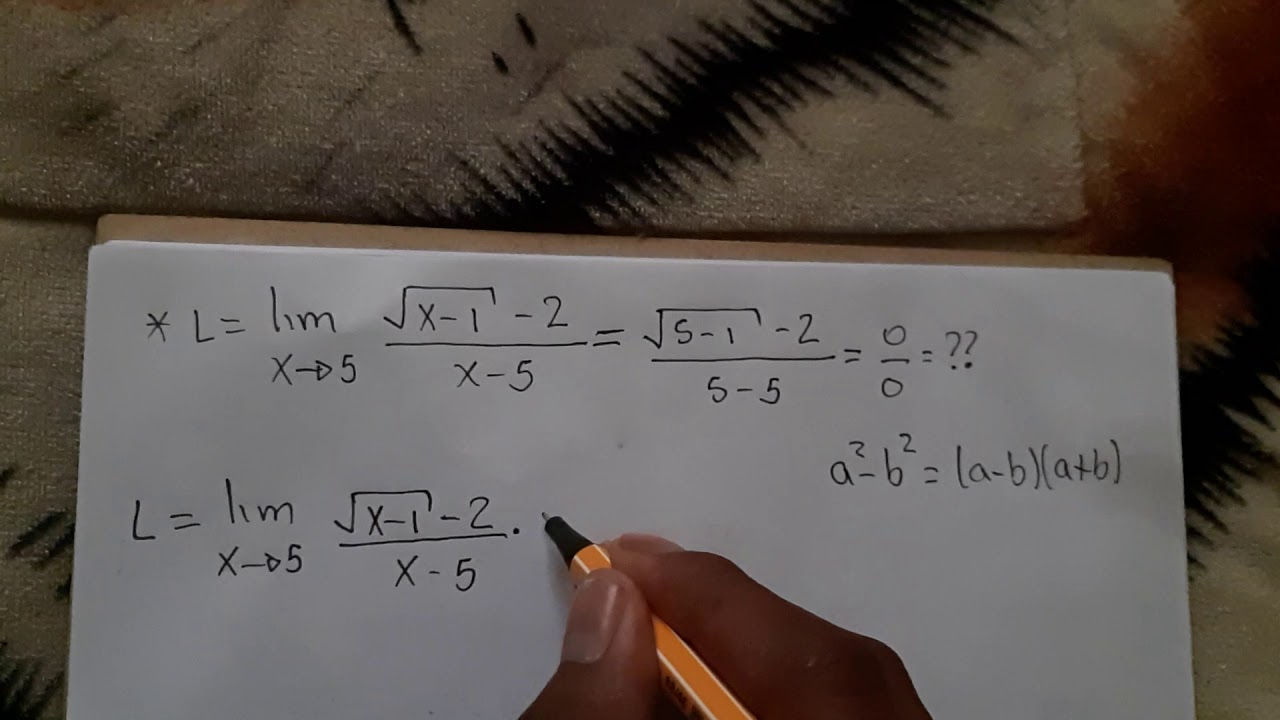 * L = lim x→5 (√(x-1) - 2)/(x-5) = (√(5-1) - 2)/(5-5) = 0/0 = ??
a² - b² = (a-b)(a+b)
L = lim x→5 (√(x-1) - 2)/(x-5) ·